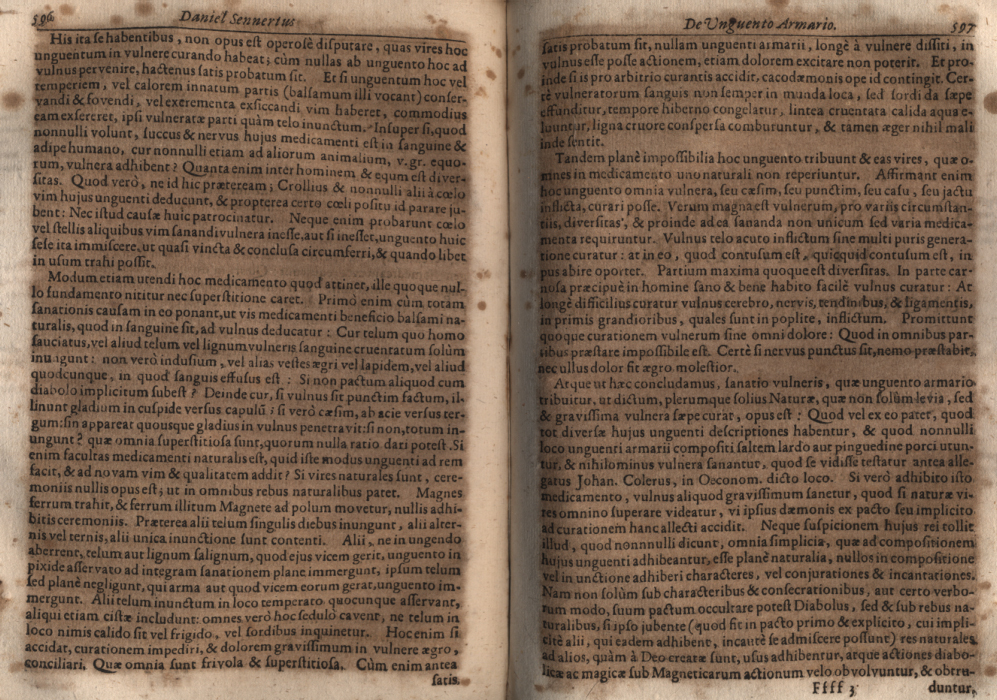 596 Daniel Sennertus
His ita se habentibus, non opus est operosè disputare, quas vires hoc
unguentum in vulnere curando habeat; cùm nullas ab unguento hoc ad
vulnus pervenire, hactenus satis probatum sit. Et si unguentum hoc vel
temperiem, vel calorem innatum partis (balsamum illi vocant) conser-
vandi & fovendi, vel excrementa exsiccandi vim haberet, commodius
eam exsereret, ipsi vulneratæ parti quàm telo inunctum. Insuper si, quod
nonnulli volunt, succus & nervus hujus medicamenti est in sanguine &
adipe humano, cur nonnulli etiam ad aliorum animalium, v. gr. equo-
rum, vulnera adhibent? Quanta enim inter hominem & equum est diver-
sitas. Quod verò, ne id hic præteream; Crollius & nonnulli alii à cœlo
vim hujus unguenti deducunt, & propterea certo cœli positu id parare ju-
bent: Nec istud causæ huic patrocinatur. Neque enim probarunt cœlo
vel stellis aliquibus vim sanandi vulnera inesse, aut si inesset, unguento huic
sese ita immiscere, ut quasi vincta & conclusa circumferri, & quando libet
in usum trahi possit.
Modum etiam utendi hoc medicamento quod attinet, ille quoque nul-
lo fundamento nititur nec superstitione caret. Primò enim cùm totam
sanationis causam in eo ponant, ut vis medicamenti beneficio balsami na-
turalis, quod in sanguine sit, ad vulnus deducatur: Cur telum quo homo
sauciatus, vel aliud telum vel lignum vulneris sanguine cruentatum solùm
inungunt: non verò indusium, vel alias vestes ægri vel lapidem, vel aliud
quodcunque, in quod sanguis effusus est: Si non pactum aliquod cum
diabolo implicitum subest? Deinde cur, si vulnus sit punctim factum, il-
linunt gladium in cuspide versus capulū; si verò cæsim, ab acie versus ter-
gum: sin appareat quousque gladius in vulnus penetravit: si non, totum in-
ungunt? quæ omnia superstitiosa sunt, quorum nulla ratio dari potest. Si
enim facultas medicamenti naturalis est, quid iste modus unguenti ad rem
facit, & ad novam vim & qualitatem addit? Si vires naturales sunt, cere-
moniis nullis opus est; ut in omnibus rebus naturalibus patet. Magnes
ferrum trahit, & ferrum illitum Magnete ad polum movetur, nullis adhi-
bitis ceremoniis. Præterea alii telum singulis diebus inungunt, alii alter-
nis vel ternis, alii unica inunctione sunt contenti. Alii, ne in ungendo
aberrent, telum aut lignum salignum, quod ejus vicem gerit, unguento in
pixide asservato ad integram sanationem plane immergunt, ipsum telum
sed planè negligunt, qui arma aut quod vicem eorum gerat, unguento im-
mergunt. Alii telum inunctum in loco temperato quocunque asservant,
aliqui etiam cistæ includunt: omnes verò hoc sedulò cavent, ne telum in
loco nimis calido sit vel frigido, vel sordibus inquinetur. Hoc enim si
accidat, curationem impediri, & dolorem gravissimum in vulnere ægro,
conciliari. Quæ omnia sunt frivola & superstitiosa. Cùm enim antea
satis.
De Unguento Armario. 597
satis probatum sit, nullam unguenti armarii, longè à vulnere dissiti, in
vulnus esse posse actionem, etiam dolorem excitare non poterit. Et pro-
inde si is pro arbitrio curantis accidit, cacodæmonis ope id contingit. Cer-
tè vulneratorum sanguis non semper in munda loca, sed sordida sæpe
effunditur, tempore hiberno congelatur, lintea cruentata calida aqua e-
luuntur, ligna cruore conspersa comburuntur, & tamen æger nihil mali
inde sentit.
Tandem planè impossibilia hoc unguento tribuunt & eas vires, quæ o-
mnes in medicamento uno naturali non reperiuntur. Affirmant enim
hoc unguento omnia vulnera, seu cæsim, seu punctim, seu casu, seu jactu
inflicta, curari posse. Verum magna est vulnerum, pro variis circumstan-
tiis, diversitas, & proinde ad ea sananda non unicum sed varia medica-
menta requiruntur. Vulnus telo acuto inflictum sine multi puris genera-
tione curatur: at in eo, quod contusum est, quicquid contusum est, in
pus abire oportet. Partium maxima quoque est diversitas. In parte car-
nosa præcipuè in homine sano & bene habito facilè vulnus curatur: At
longè difficilius curatur vulnus cerebro, nervis, tendinibus, & ligamentis,
in primis grandioribus, quales sunt in poplite, inflictum. Promittunt
quoque curationem vulnerum sine omni dolore: Quod in omnibus par-
tibus præstare impossibile est. Certè si nervus punctus sit, nemo præstabit,
nec ullus dolor sit ægro molestior.
Atque ut hæc concludamus, sanatio vulneris, quæ unguento armario
tribuitur, ut dictum, plerumque solius Naturæ, quæ non solùm levia, sed
& gravissima vulnera sæpe curat, opus est: Quod vel ex eo patet, quod
tot diversæ hujus unguenti descriptiones habentur, & quod nonnulli
loco unguenti armarii compositi saltem lardo aut pinguedine porci utun-
tur, & nihilominus vulnera sanantur, quod se vidisse testatur antea alle-
gatus Johan. Colerus, in Oeconom. dicto loco. Si verò adhibito isto
medicamento, vulnus aliquod gravissimum sanetur, quod si naturæ vi-
res omnino superare videatur, vi ipsius dæmonis ex pacto seu implicito
ad curationem hanc allecti accidit. Neque suspicionem hujus rei tollit
illud, quod nonnnulli dicunt, omnia simplicia, quæ ad compositionem
hujus unguenti adhibeantur, esse planè naturalia, nullos in compositione
vel in unctione adhiberi characteres, vel conjurationes & incantationes.
Nam non solùm sub characteribus & consecrationibus, aut certo verbo-
rum modo, suum pactum occultare potest Diabolus, sed & sub rebus na-
turalibus, si ipso jubente (quod fit in pacto primo & explicito, cui impli-
citè alii, qui eadem adhibent, incautè se admiscere possunt) res naturales
ad alios, quàm à Deo creatæ sunt, usus adhibentur, atque actiones diabo-
licæ ac magicæ sub Magneticarum actionum velo obvolvuntur, & obtru-
Ffff 3 duntur,